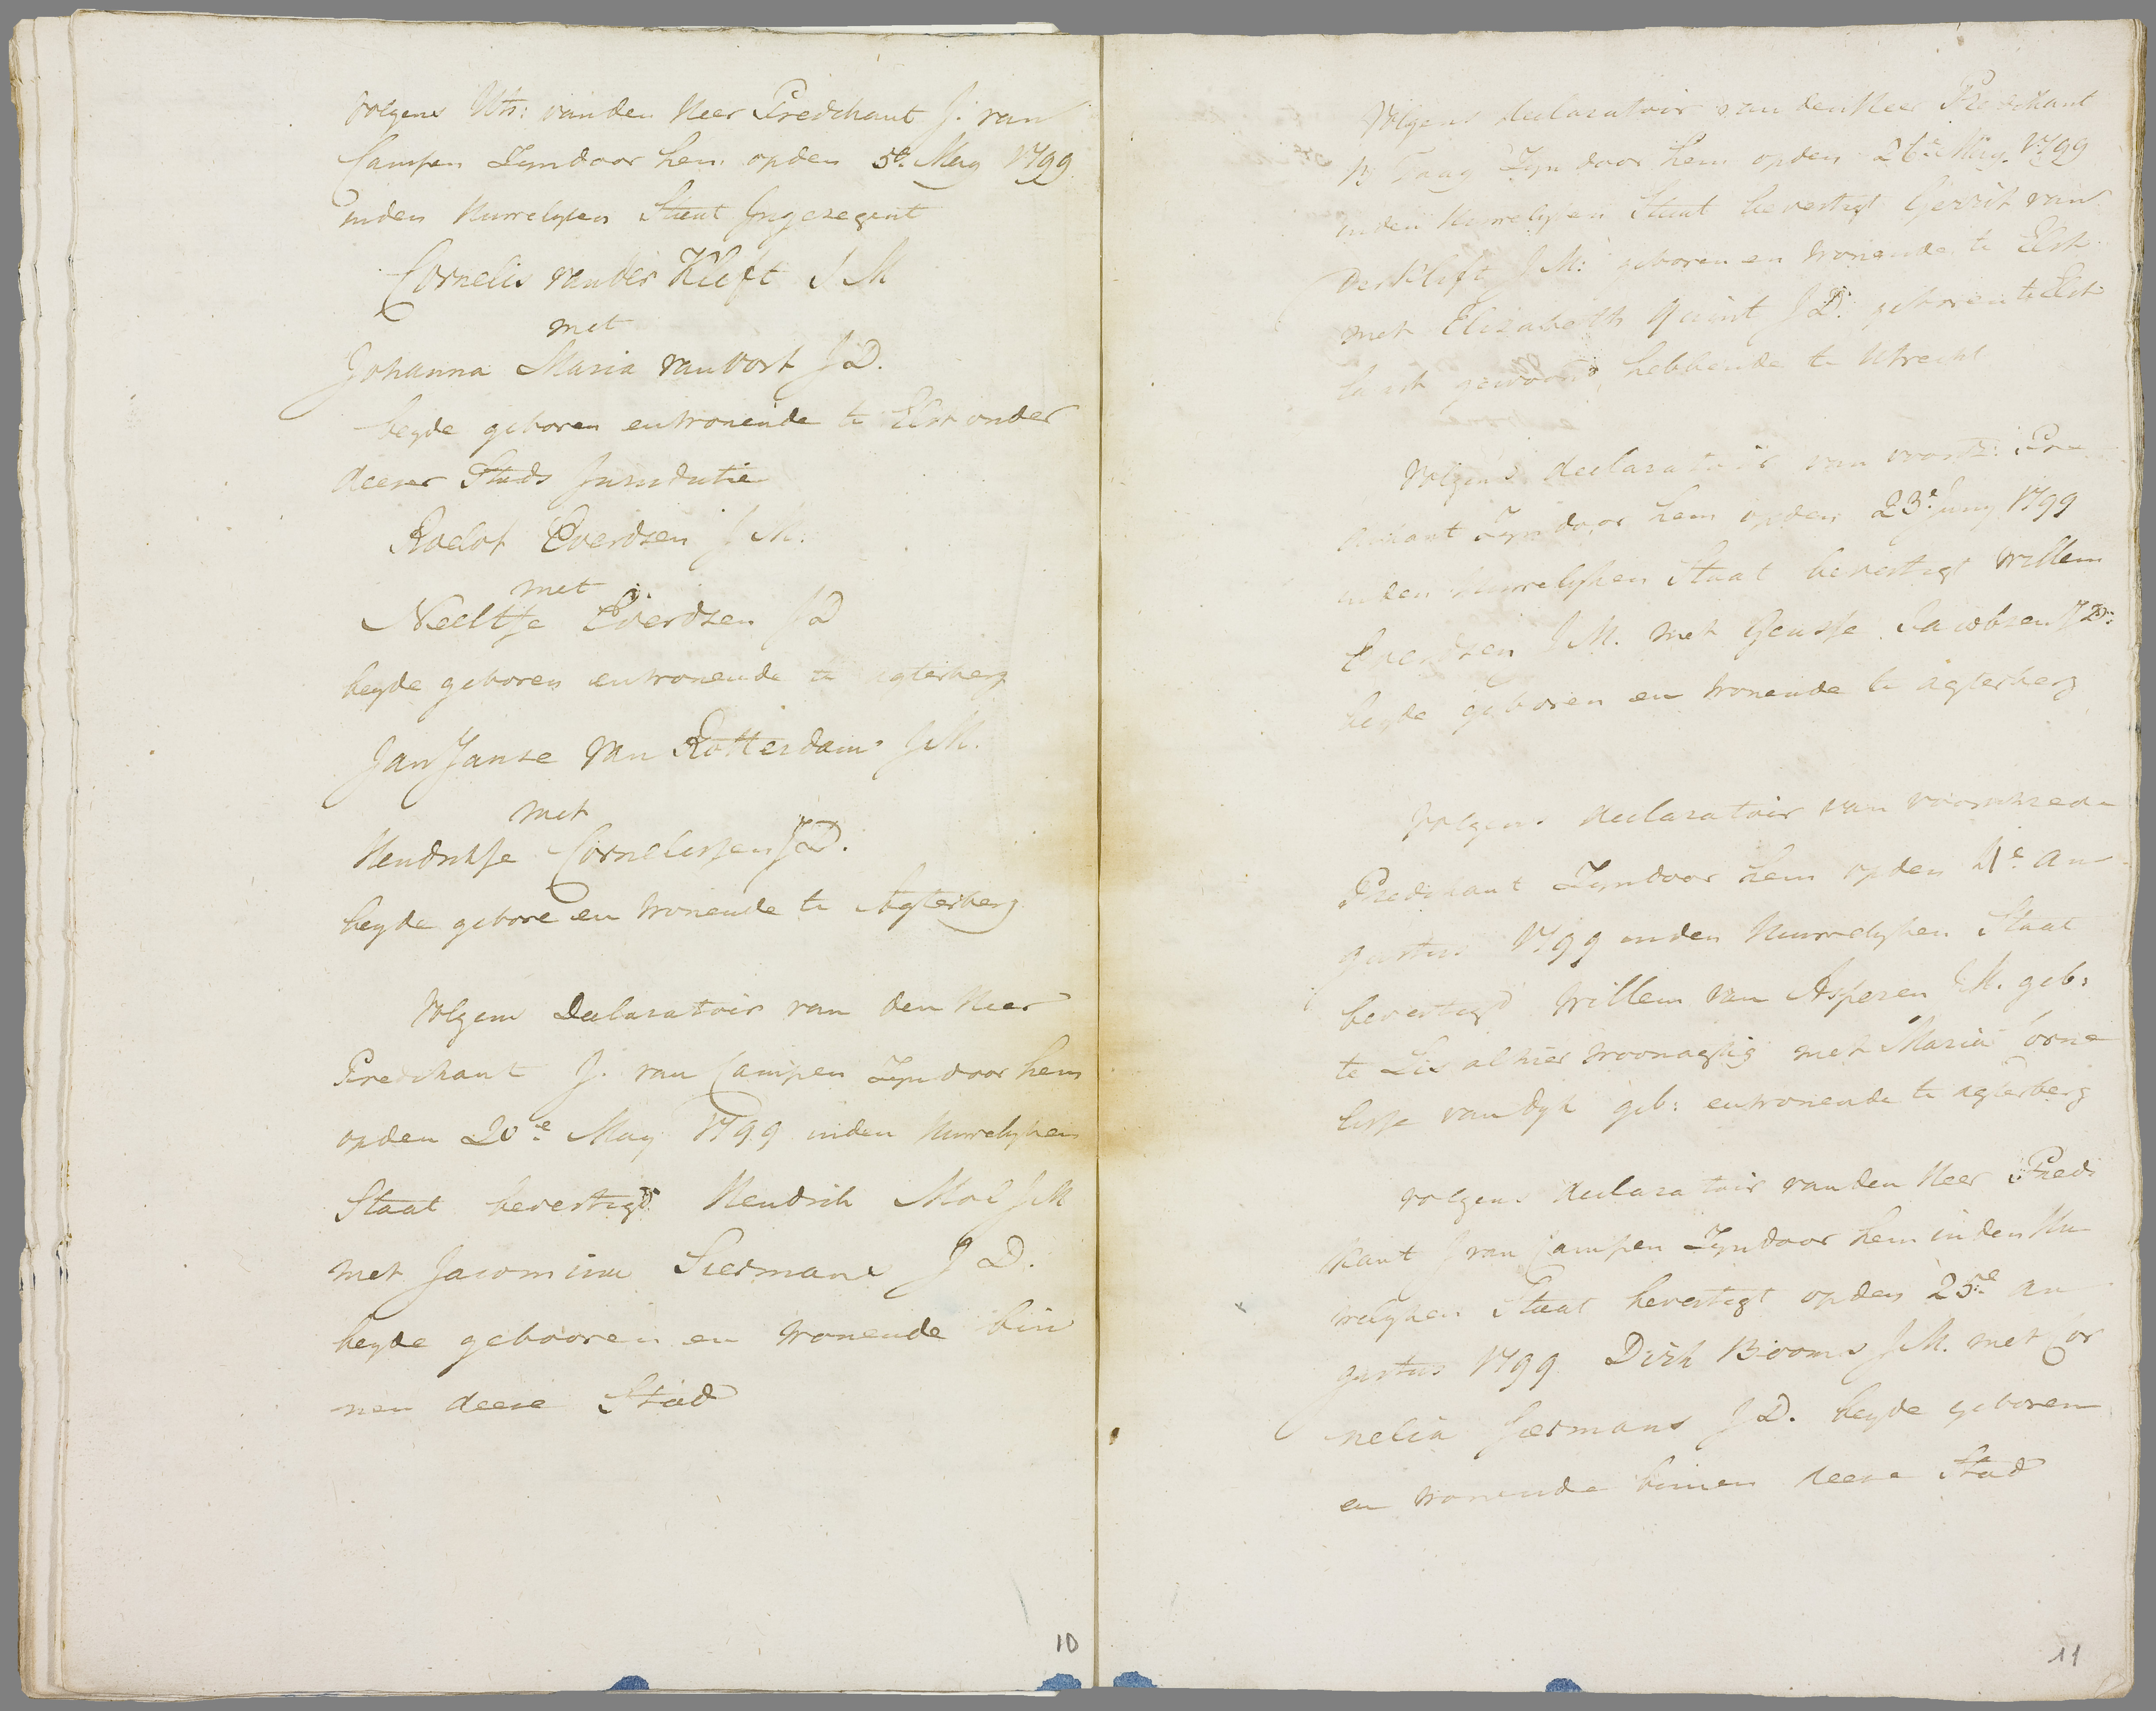 Volgens Att: vanden Heer Predikant J. van
Campen Zyn door hem opden 5e. Mey 1799
inden Huwelyken Staat Ingezegent
Cornelis vander Klift J M
met
Johanna Maria van Oort J D.
beyde geboren en wonende te Elst onder
deeser Stads Jurisdictie
Roelof Everdsen J M.
met
Neeltje Everdsen J D
beyde geboren en wonende te agterberg
Jan Janse van Rotterdam J M.
met
Hendrikje Cornelissen J D.
beyde gebore en wonende te Agterberg
Volgens Declaratoir van den Heer
Predikant J. van Campen Zyn door hem
opden 20e May 1799 inden Huwelyken
Staat bevestigd Hendrik Mol J M
met Jacomina Siermans J D.
beyde gebooren en wonende bin
nen deese Stad
10
Volgens declaratoir van den Heer Predikant
Zyn door hem opden 26e May 1799
inden Huwelyken Staat bevestigt Gerrit van
der Klift J M: geboren en wonende te Elst
met Elizabeth Quint J D: geboren te Elst
laast gewoond hebbende te Utrecht
Volgens declaratoir van voorsz: Pre
dikant Zyn door hem opden 23e Juny 1799
inden Huwelyken Staat bevestigt Willem
Everdsen J M. met Gensje Jacobsen J D:
beyde geboren en wonende te agterberg
Volgens declaratoir van voornoemde
Predikant Zyn door hem opden 11e au
gustus 1799 inden Huwelyken Staat
bevestigd Willem van Asperen J M. geb:
te Lis alhier woonagtig met Maria Corne
lisse van Dyk geb: en wonende te agterberg
Volgens declaratoir vanden Heer Predi
kant J van Campen Zyn door hem inden Hu
welyken Staat bevestigt opden 25e au
gustus 1799 Dirk Booms J M. met Cor
nelia Germans J D. beyde geboren
en wonende binnen deese Stad
11